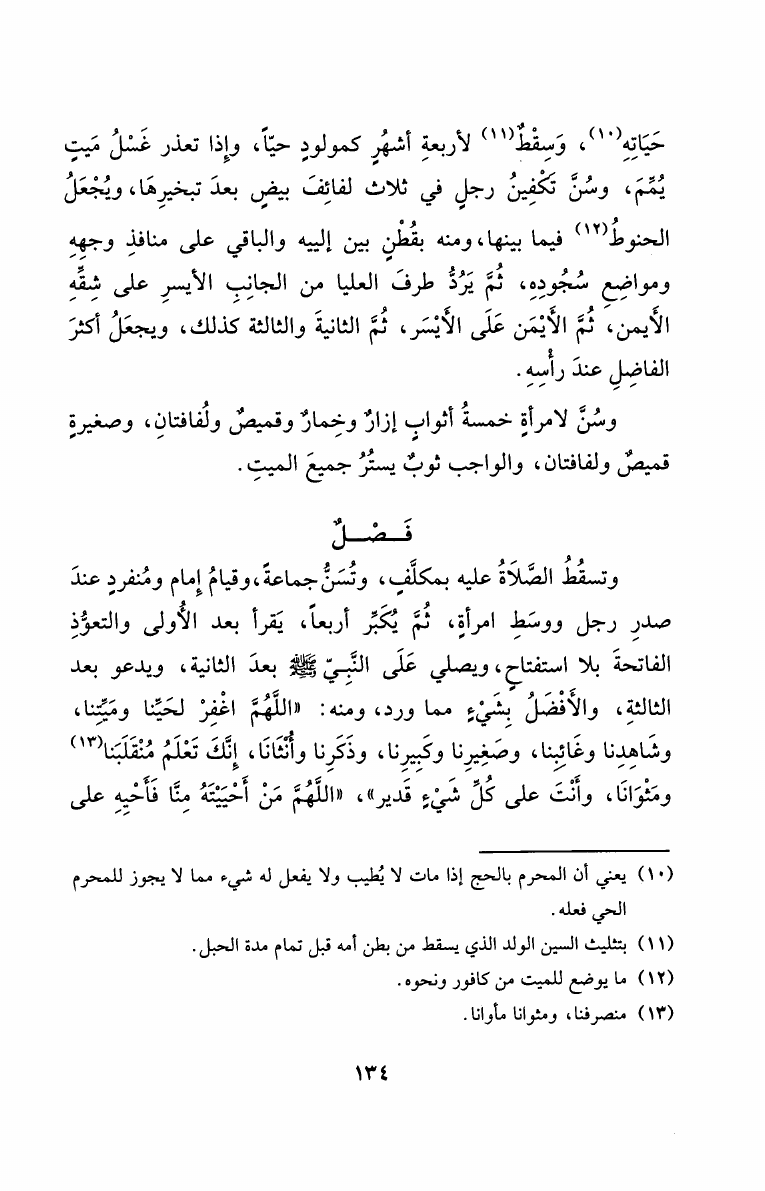 حَيَاتِهِ(١٠)، وَسِقْطٌ(١١) لأربعةِ أشهُرٍ كمولودٍ حيّاً، وإِذا تعذر غَسْلُ مَيتٍ
يُمِّمَ، وسُنَّ تَكْفِينُ رجلٍ في ثلاث لفائِفَ بيضٍ بعدَ تبخيرِهَا، ويُجْعَلُ
الحنوطُ(١٢) فيما بينها، ومنه بقُطْنٍ بين إلييه والباقي على منافذِ وجهِهِ
ومواضِعِ سُجُودِهِ، ثُمَّ يَرُدُّ طرفَ العليا من الجانِبِ الأيسرِ على شِقِّهِ
الأيمن، ثُمَّ الأَيْمَن عَلَى الأَيْسَر، ثُمَّ الثانيةَ والثالثة كذلك، ويجعَلُ أكثرَ
الفاضِلِ عندَ رأْسِهِ.
وسُنَّ لامرأةٍ خمسةُ أثوابٍ إزارٌ وخِمارٌ وقميصٌ ولُفافتانِ، وصغيرةٍ
قميصٌ ولفافتان، والواجب ثوبٌ يستُرُ جميعَ الميتِ.
فَـصْـلٌ
وتسقُطُ الصَّلَاةُ عليه بمكلَّفٍ، وتُسَنُّ جماعةً، وقيامُ إِمام ومُنفردٍ عندَ
صدرِ رجل ووسَطِ امرأةٍ، ثُمَّ يُكَبِّر أربعاً، يَقرأ بعد الأُولى والتعوُّذِ
الفاتحةَ بلا استفتاحٍ، ويصلي عَلَى النَّبِيّ ﷺ بعدَ الثانية، ويدعو بعد
الثالثةِ، والأَفْضَلُ بِشَيْءٍ مما ورد، ومنه: «اللَّهُمَّ اغْفِرْ لحَيِّنا ومَيِّتِنا،
وشَاهِدِنا وغَائِبِنا، وصَغِيرِنا وكَبِيرِنا، وذَكَرِنا وأُنْثَانَا، إِنَّكَ تَعْلَمُ مُنْقَلَبَنا(١٣)
ومَثْوَانَا، وأَنْتَ على كُلِّ شَيْءٍ قَدير»، «اللَّهُمَّ مَنْ أَحْيَيْتَهُ مِنَّا فَأَحْيِهِ على
(١٠) يعني أن المحرم بالحج إذا مات لا يُطيب ولا يفعل له شيء مما لا يجوز للمحرم
الحي فعله.
(١١) بتثليث السين الولد الذي يسقط من بطن أمه قبل تمام مدة الحبل.
(١٢) ما يوضع للميت من كافور ونحوه.
(١٣) منصرفنا، ومثوانا مأوانا.
١٣٤